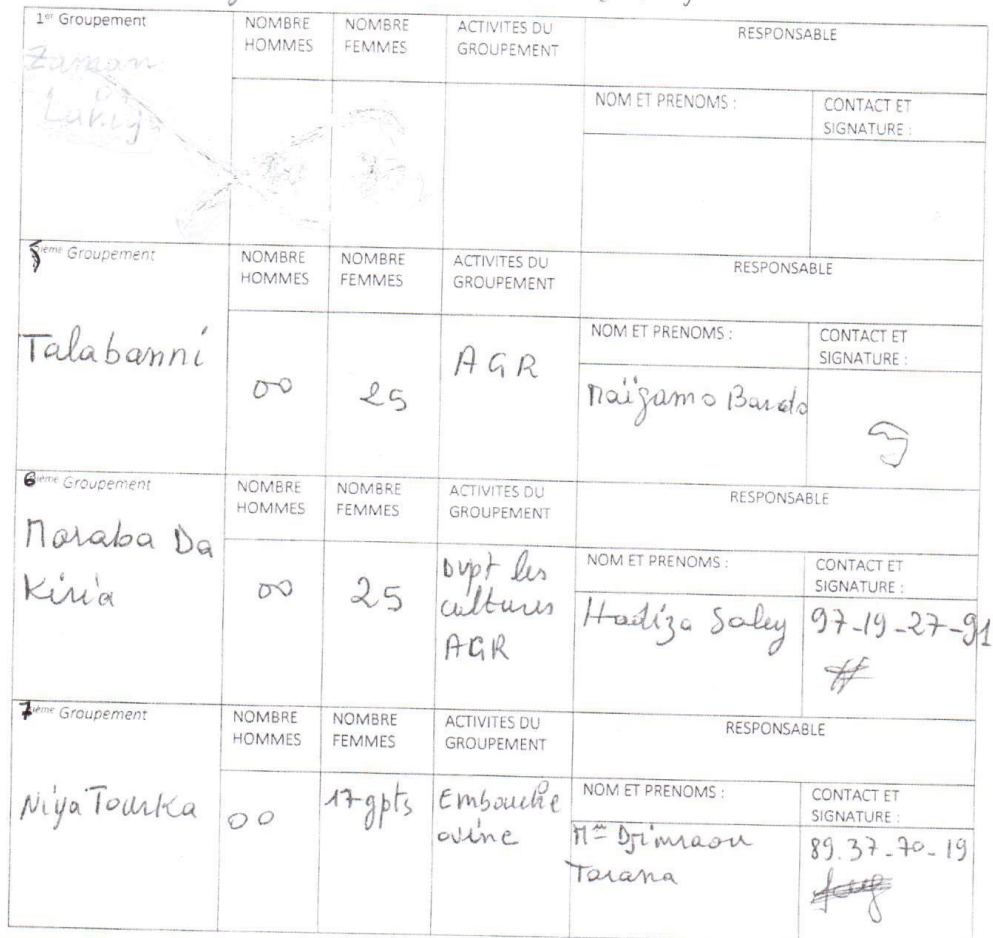 1er Groupement
NOMBRE HOMMES
NOMBRE FEMMES
ACTIVITES DU GROUPEMENT
RESPONSABLE
Zaman
Lahiya
NOM ET PRENOMS :
CONTACT ET SIGNATURE :
5ième Groupement
NOMBRE HOMMES
NOMBRE FEMMES
ACTIVITES DU GROUPEMENT
RESPONSABLE
Talabanni
00
25
AGR
NOM ET PRENOMS :
CONTACT ET SIGNATURE :
Maïgamo Bando
6ième Groupement
NOMBRE HOMMES
NOMBRE FEMMES
ACTIVITES DU GROUPEMENT
RESPONSABLE
Maraba Da
Kiria
00
25
Dvpt les
cultures
AGR
NOM ET PRENOMS :
CONTACT ET SIGNATURE :
Hadiza Saley
97-19-27-91
7ième Groupement
NOMBRE HOMMES
NOMBRE FEMMES
ACTIVITES DU GROUPEMENT
RESPONSABLE
Niya Tourka
00
17 gpts
Embouche
ovine
NOM ET PRENOMS :
CONTACT ET SIGNATURE :
Mme Djimraou
Tarana
89.37-70-19